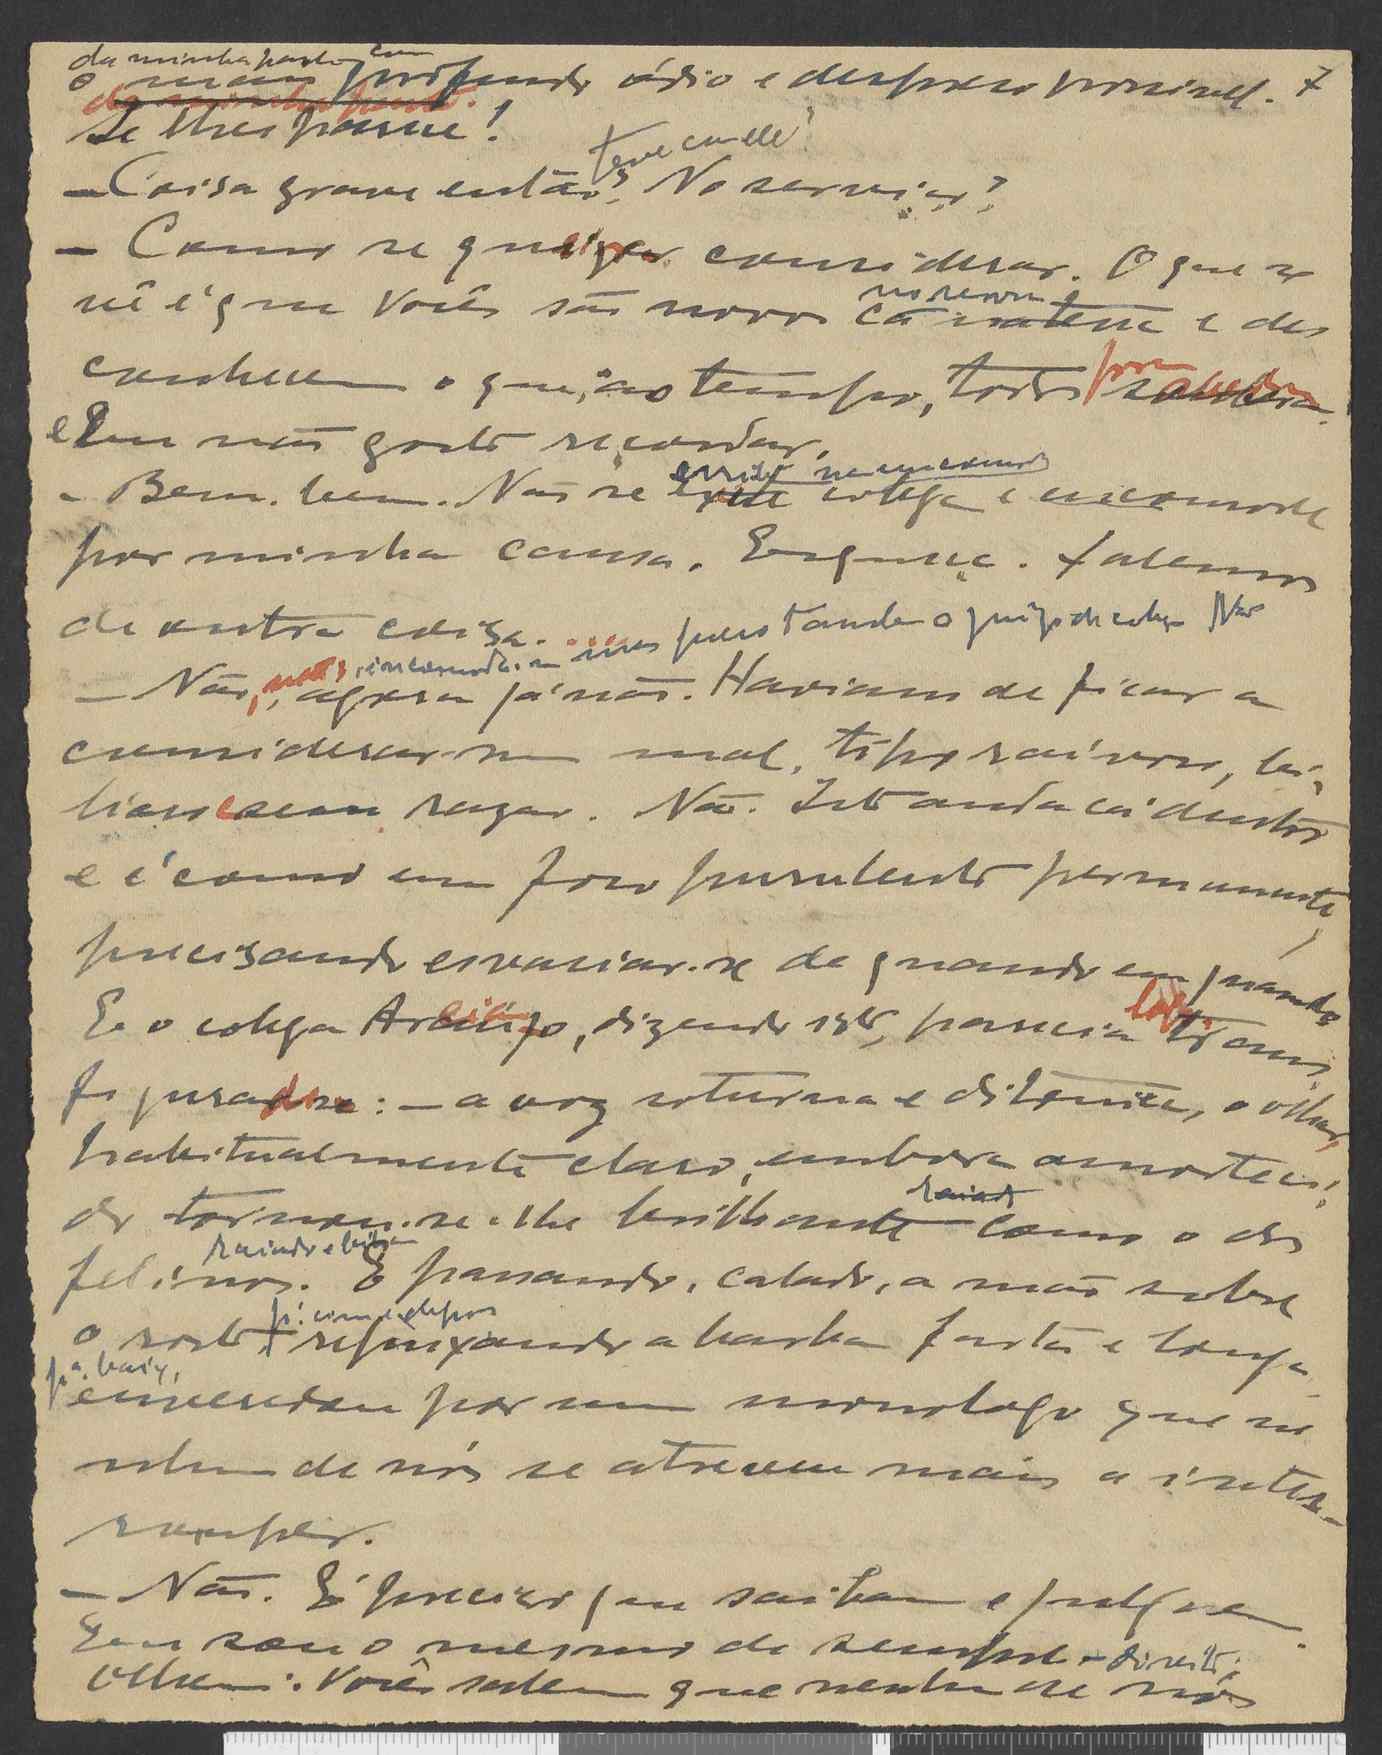 da minha parte, com
o mais profundo ódio e desprezo possivel. 7
da minha parte.
se lhes passue!
teve com ele?
— Coisa grave então? No serviço?
— Como se queira considerar. O que se
vê é que Vocês são novos cá e des
conhecem o que, ao tempo, todos
e Eu não gosto recordar.
excite, se incomode
- Bem, bem. Não se colega e incomode
por minha causa. Esqueça. Falemos
de outra coisa.
— Não, agora já não. Haviam de ficar a
considerar-me mal, tipo raivoso, bi-
lioso sem razão. Não. Isto anda cá dentro
e é como um foco purulento permanente,
precisando esvasiar-se de quando em quando
E o colega Araujo, dizendo isto, parecia trans
figurado: — a voz soturna e distante, o olhar,
habitualmente claro, embora amorteci-
raiado
do tornou-se-lhe brilhante como o dos
felinos. E passando, calado, a mão sobre
p. cima e depois
o rosto repuxando a barba farta e longa
p.a baixo,
enveredou por um monologo que ne
nhum de nós se atreveu mais a inter-
romper.
— Não. É preciso que saibam e julguem.
Eu sou o mesmo de sempre - direito;
Olhem: Vocês sabem que nenhum de nós